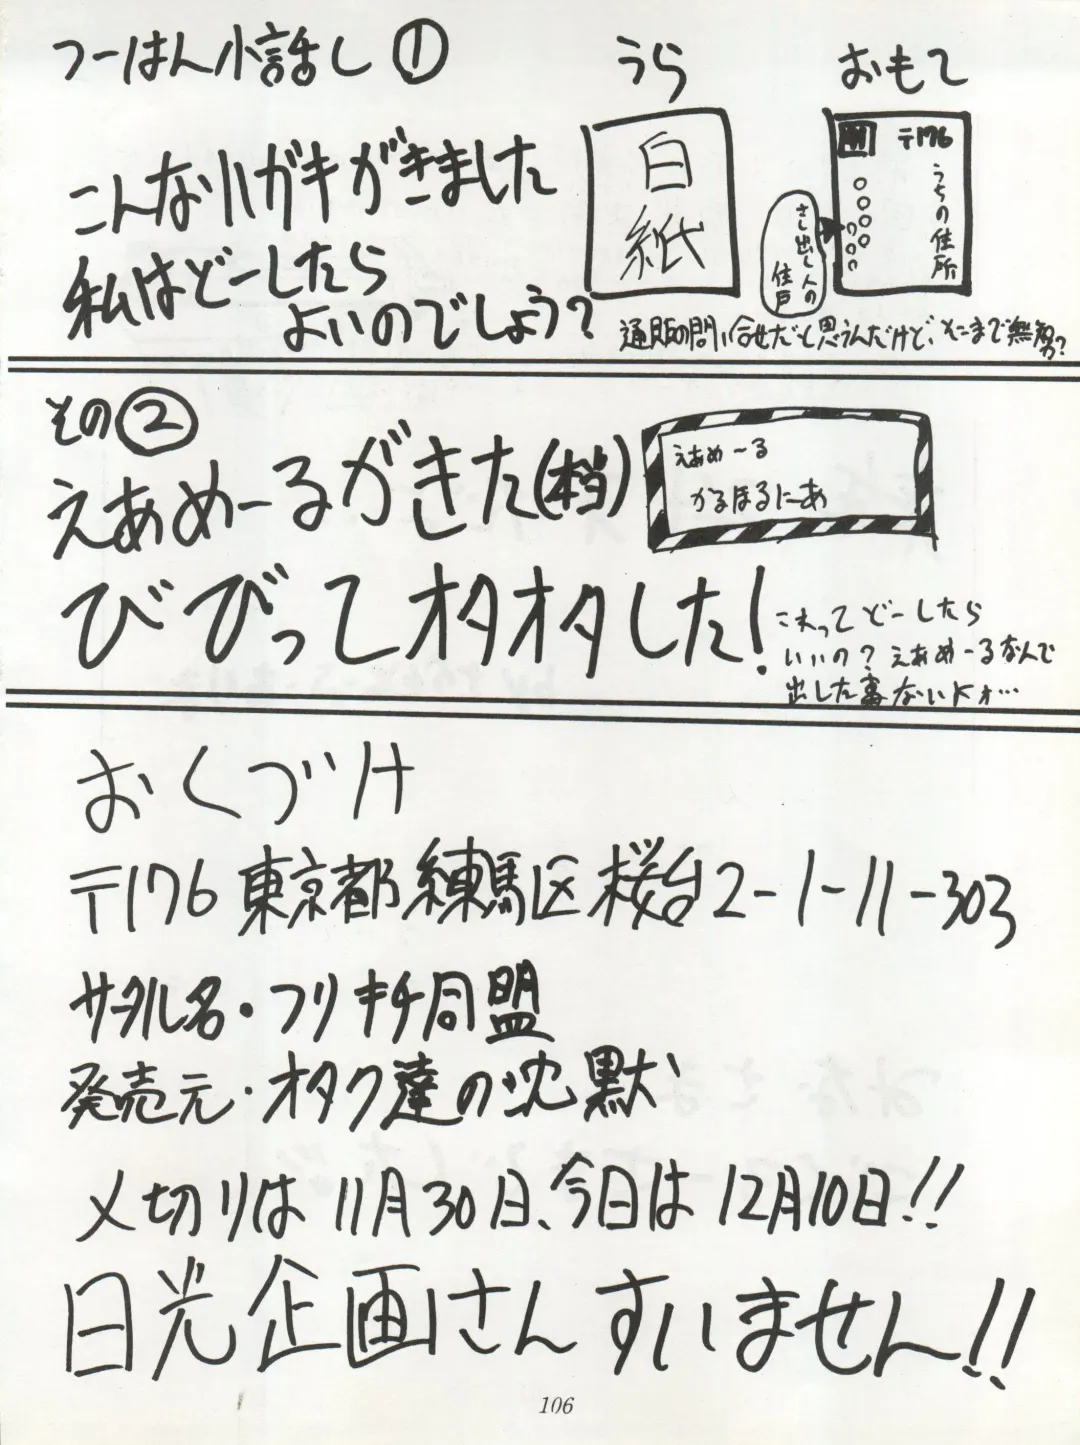 つーはん小話し ①
うら
おもて
白紙
〒176
うちの住所
さし出し人の住戸
こんなハガキがきました
私はどーしたら
よいのでしょう?
通販の問い合せだと思うんだけど、そこまで無智?
その②
えあめーるがきた(本当)
えあめ〜る
かるほるにあ
びびってオタオタした!
これってどーしたら
いいの? えあめーるなんで
出した事ないよォ…
おくづけ
〒176 東京都練馬区桜台2-1-11-303
サークル名・フリキチ同盟
発売元・オタク達の沈黙
〆切りは11月30日、今日は12月10日!!
日光企画さんすいません!!
106